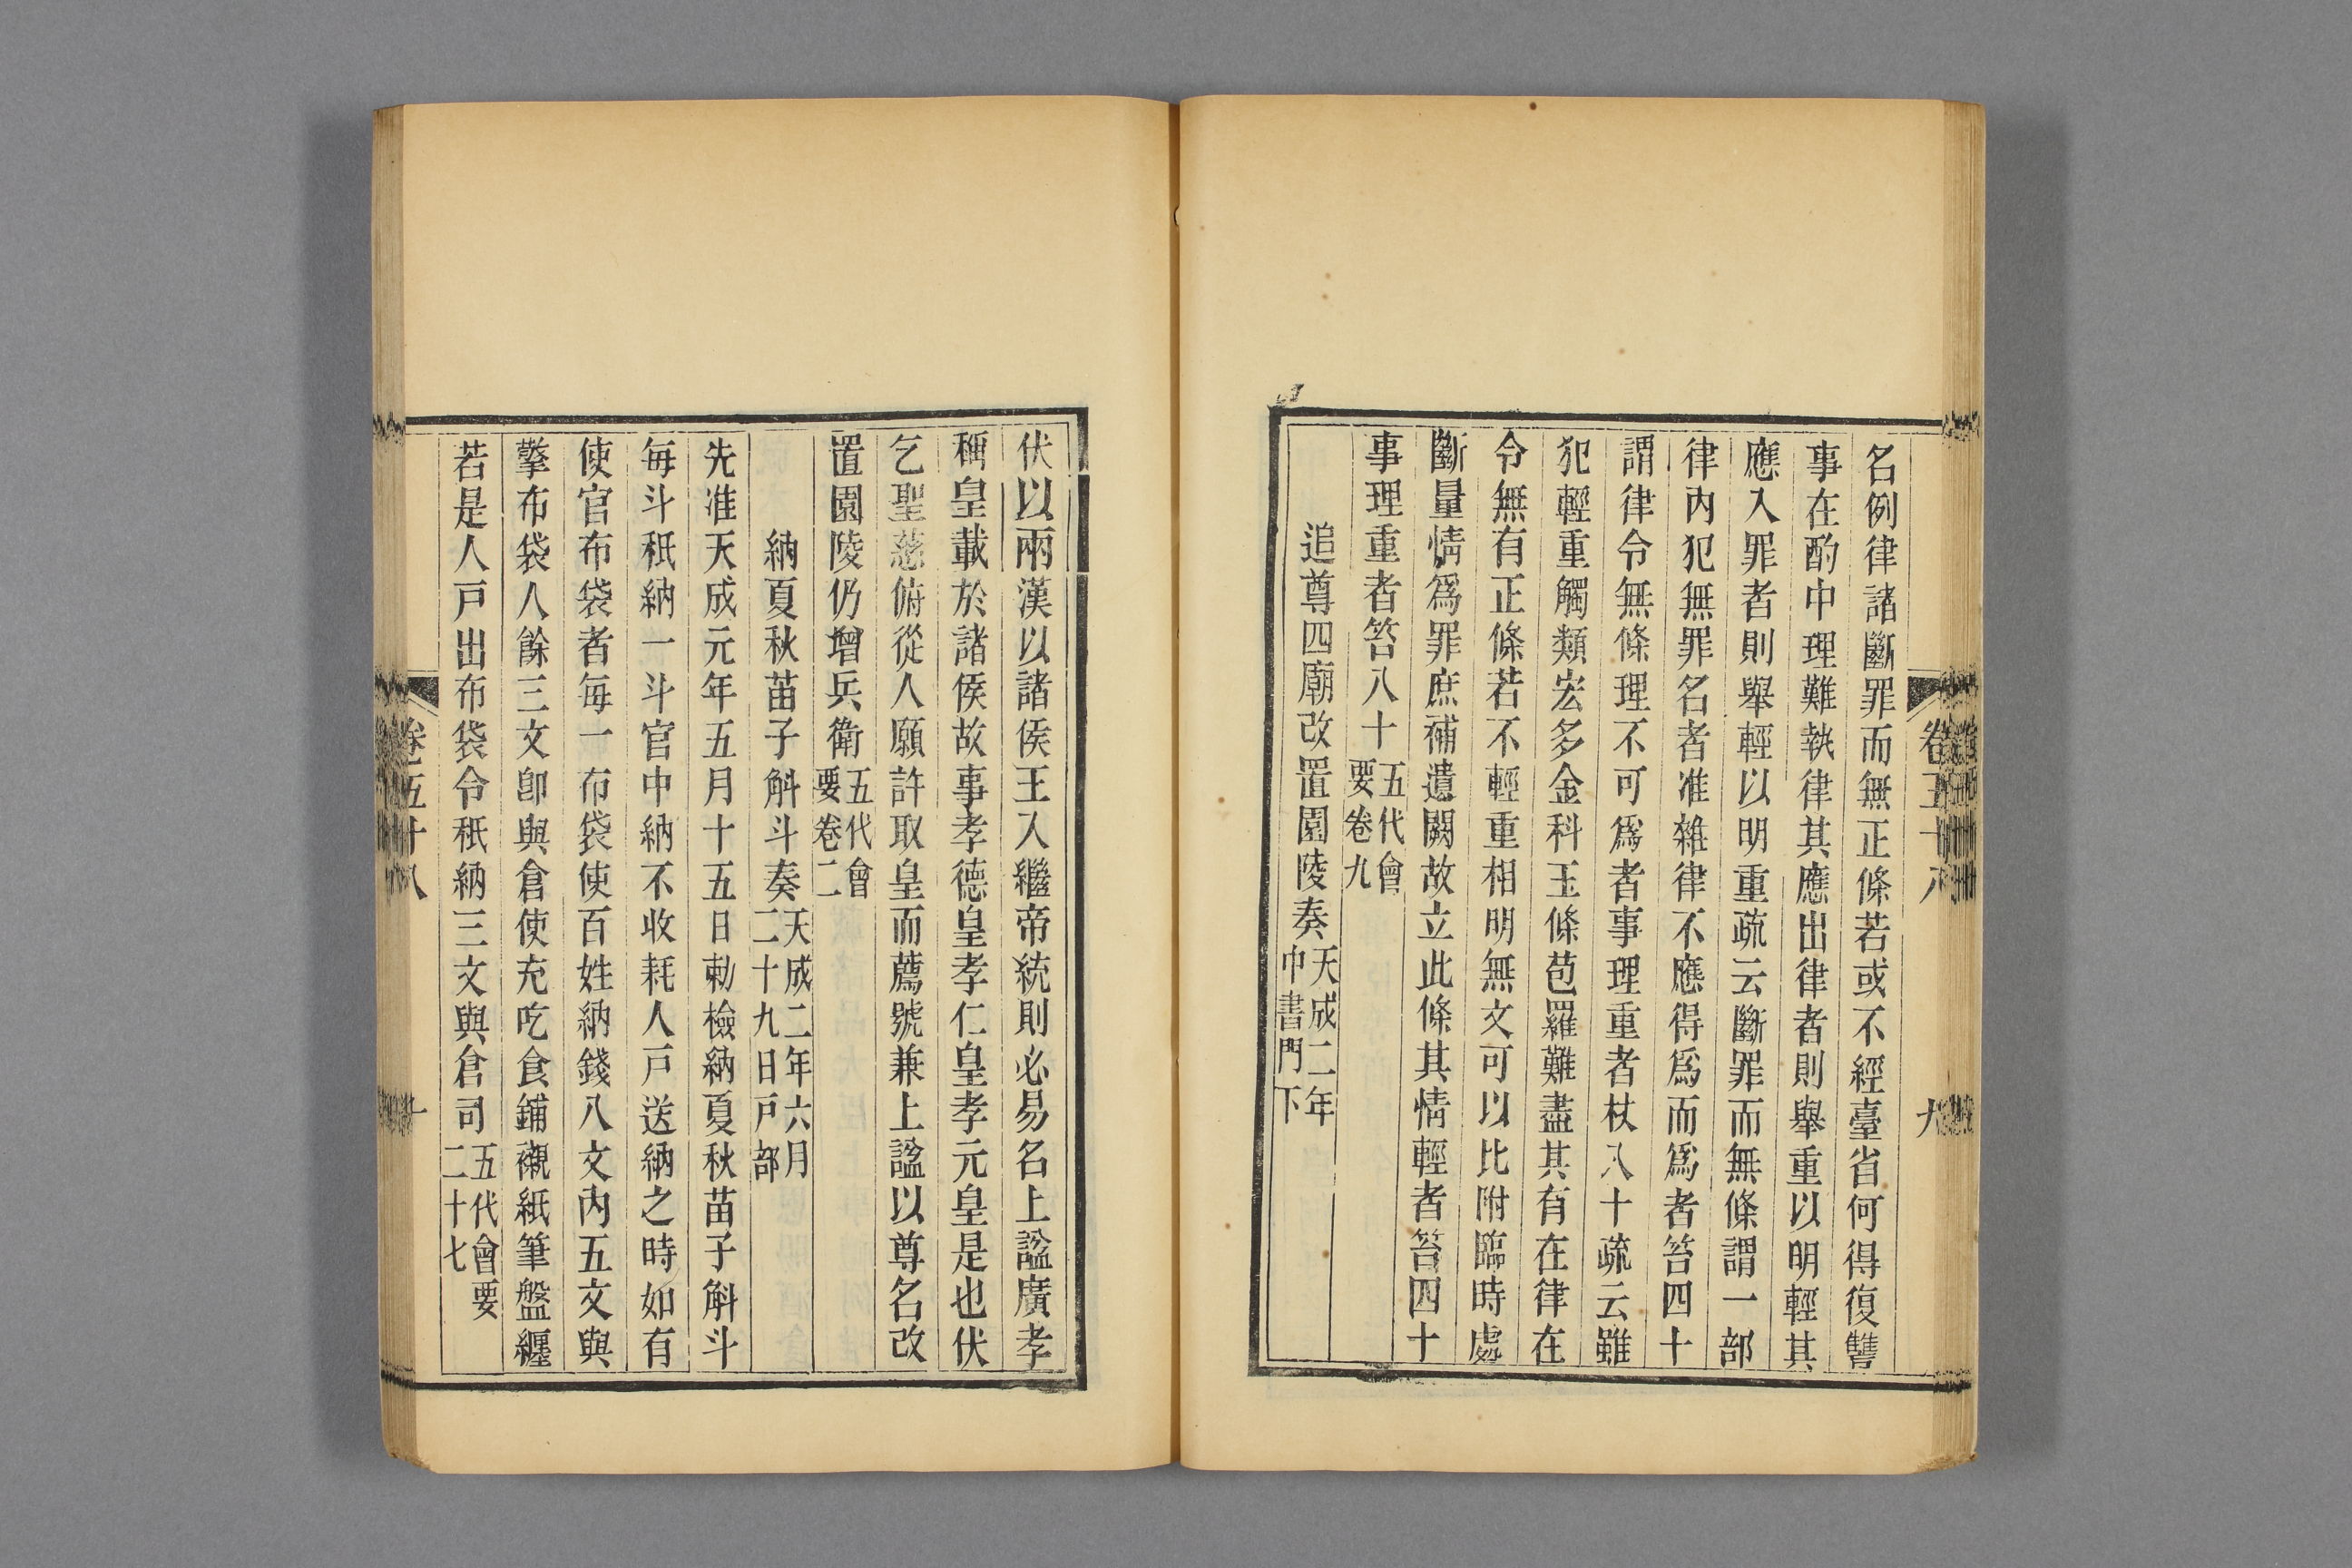 卷五十八
九
名例律諸斷罪而無正條若或不經臺省何得復讐
事在酌中理難執律其應出律者則舉重以明輕其
應入罪者則舉輕以明重疏云斷罪而無條謂一部
律內犯無罪名者准雜律不應得爲而爲者笞四十
謂律令無條理不可爲者事理重者杖八十疏云雖
犯輕重觸類宏多金科玉條苞羅難盡其有在律在
令無有正條若不輕重相明無文可以比附臨時處
斷量情爲罪庶補遺闕故立此條其情輕者笞四十
事理重者笞八十五代會
要卷九
追尊四廟改置園陵奏天成二年
中書門下
伏以兩漢以諸侯王入繼帝統則必易名上諡廣孝
稱皇載於諸侯故事孝德皇孝仁皇孝元皇是也伏
乞聖慈俯從人願許取皇而薦號兼上諡以尊名改
置園陵仍增兵衛五代會
要卷二
納夏秋苗子斛斗奏天成二年六月
二十九日戸部
先准天成元年五月十五日勅檢納夏秋苗子斛斗
每斗秖納一斗官中納不收耗人戸送納之時如有
使官布袋者每一布袋使百姓納錢八文內五文與
擎布袋人餘三文卽與倉使充吃食鋪襯紙筆盤纏
若是人戸出布袋令秖納三文與倉司五代會要
二十七
卷五十八
十